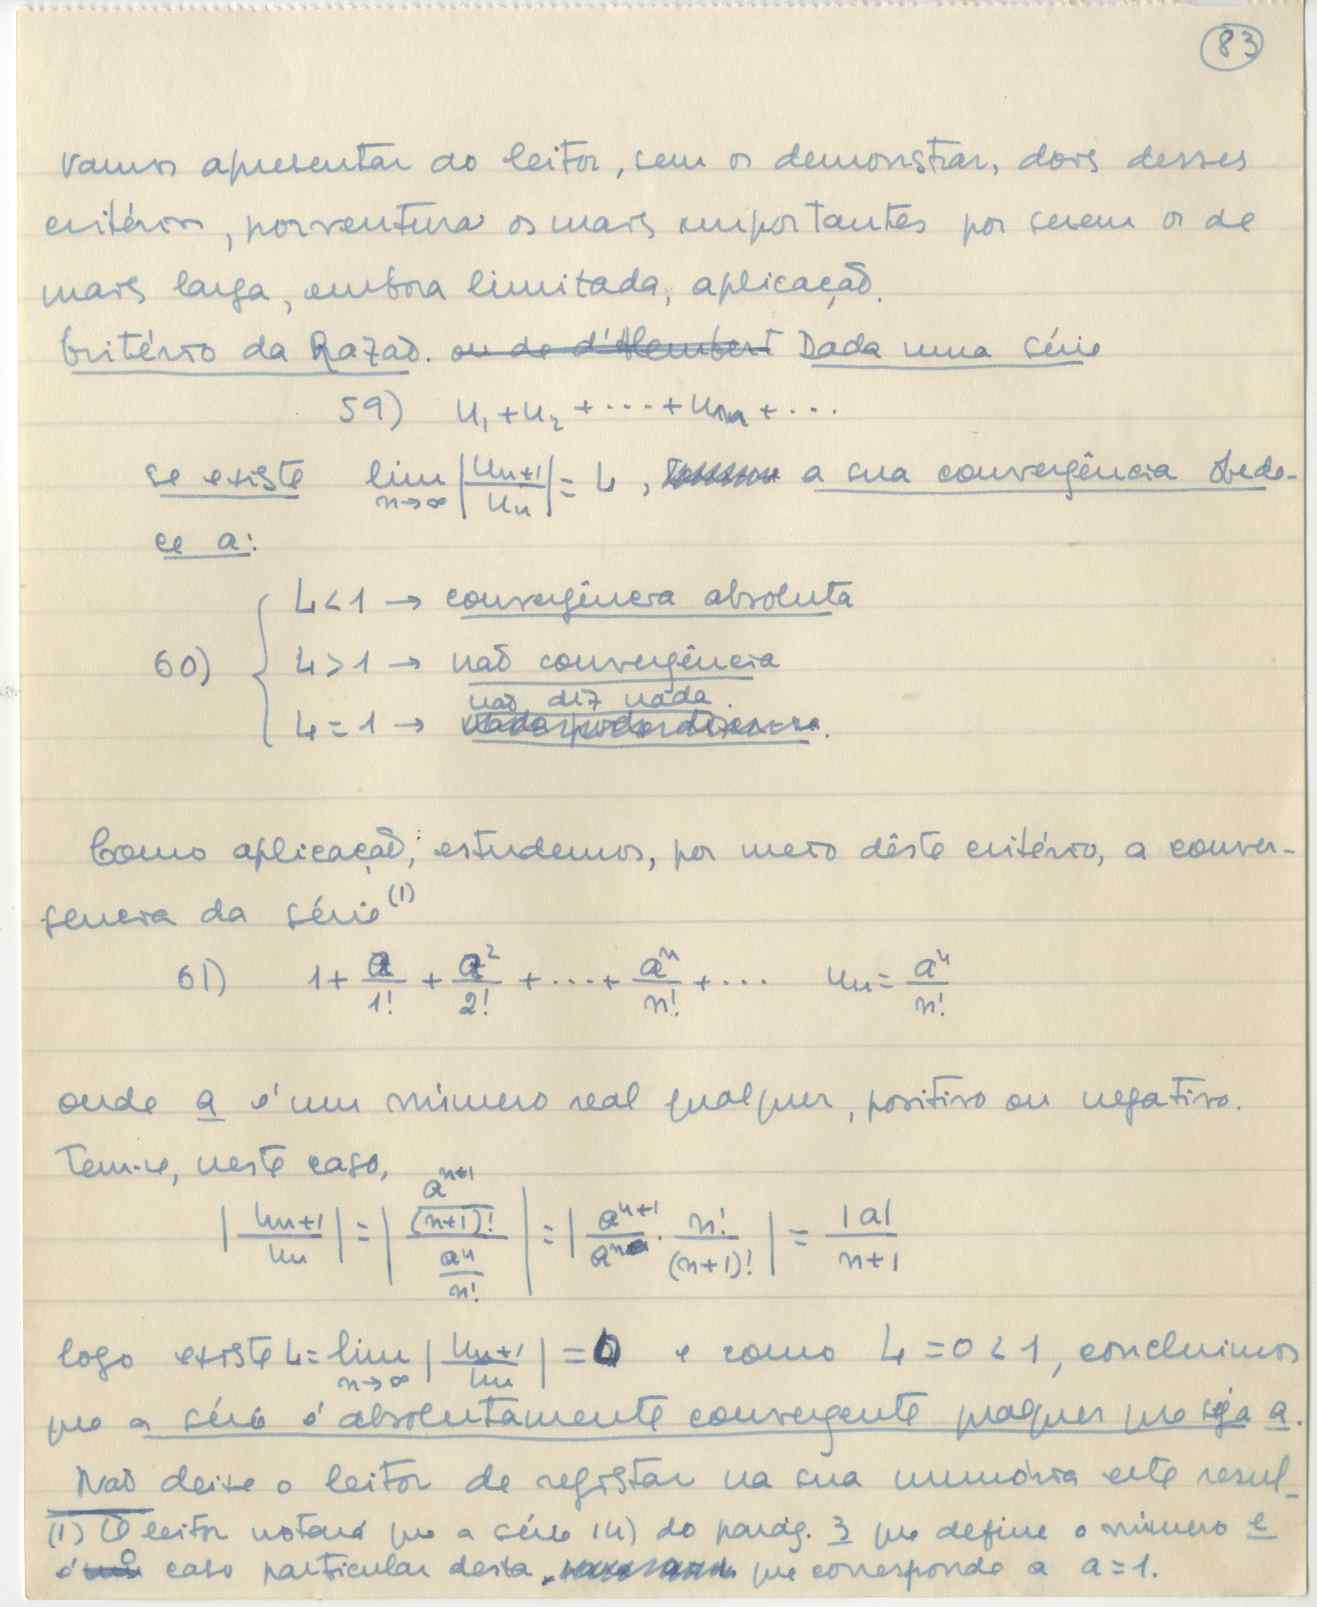 83
vamos apresentar ao leitor, sem os demonstrar, dois desses
critérios, porventura os mais importantes por serem os de
mais larga, embora limitada, aplicação.
Critério da Razão. ou de d'Alembert Dada uma série
59) u₁ + u₂ + ··· + uₙ + ···
se existe lim n→∞ |uₙ₊₁/uₙ| = L, a sua convergência obede-
ce a:
L < 1 → convergência absoluta
60) L > 1 → não convergência
não diz nada.
L = 1 →
Como aplicação, estudemos, por meio dêste critério, a conver-
gencia da série (1)
61) 1 + a/1! + a²/2! + ··· + aⁿ/n! + ··· uₙ = aⁿ/n!
onde a é um número real qualquer, positivo ou negativo.
Tem-se, neste caso,
|uₙ₊₁/uₙ| = |(aⁿ⁺¹/(n+1)!)/(aⁿ/n!)| = |aⁿ⁺¹/aⁿ · n!/(n+1)!| = |a|/(n+1)
logo existe L = lim n→∞ |uₙ₊₁/uₙ| = 0 e como L = 0 < 1, concluimos
que a série é absolutamente convergente qualquer que seja a.
Não deixe o leitor de registar na sua memória este resul-
(1) O leitor notará que a série 14) do parág. 3 que define o número e
é o caso particular desta que corresponde a a = 1.